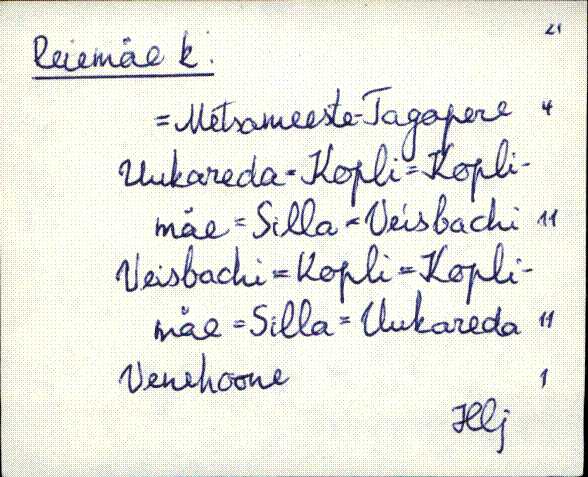 21
Reiemäe k.
=Metsameeste-Tagapere 4
Uukareda=Kopli=Kopli-
mäe=Silla=Veisbachi 11
Veisbachi=Kopli=Kopli-
mäe=Silla=Uukareda 11
Venehoone 1
Hlj